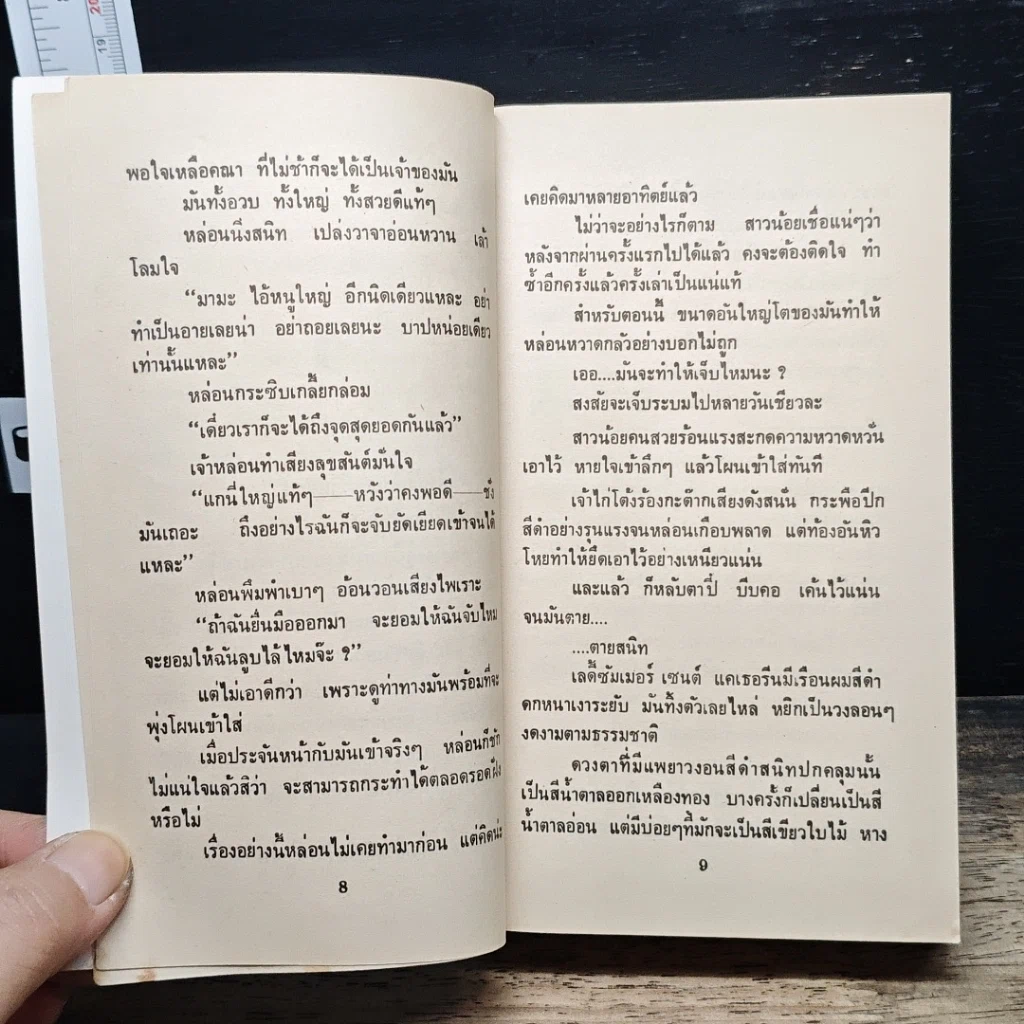 พอใจเหลือคณา ที่ไม่ช้าก็จะได้เป็นเจ้าของมัน
มันทั้งอวบ ทั้งใหญ่ ทั้งสวยดีแท้ๆ
หล่อนนิ่งสนิท เปล่งวาจาอ่อนหวาน เล้า
โลมใจ
“มามะ ไอ้หนูใหญ่ อีกนิดเดียวแหละ อย่า
ทำเป็นอายเลยน่า อย่าถอยเลยนะ บาปหน่อยเดียว
เท่านั้นแหละ”
หล่อนกระซิบเกลี้ยกล่อม
“เดี๋ยวเราก็จะได้ถึงจุดสุดยอดกันแล้ว”
เจ้าหล่อนทำเสียงสุขสันต์มั่นใจ
“แกนี่ใหญ่แท้ๆ——หวังว่าคงพอดี——ช่ง
มันเถอะ ถึงอย่างไรฉันก็จะจับยัดเยียดเข้าจนได้
แหละ”
หล่อนพึมพำเบาๆ อ้อนวอนเสียงไพเราะ
“ถ้าฉันยื่นมือออกมา จะยอมให้ฉันจับไหม
จะยอมให้ฉันลูบไล้ไหมจ๊ะ ?”
แต่ไม่เอาดีกว่า เพราะดูท่าทางมันพร้อมที่จะ
พุ่งโผนเข้าใส่
เมื่อประจันหน้ากับมันเข้าจริงๆ หล่อนก็ชัก
ไม่แน่ใจแล้วสิว่า จะสามารถกระทำได้ตลอดรอดฝั่ง
หรือไม่
เรื่องอย่างนี้หล่อนไม่เคยทำมาก่อน แต่คิดน่ะ
8
เคยคิดมาหลายอาทิตย์แล้ว
ไม่ว่าจะอย่างไรก็ตาม สาวน้อยเชื่อแน่ๆว่า
หลังจากผ่านครั้งแรกไปได้แล้ว คงจะต้องติดใจ ทำ
ซ้ำอีกครั้งแล้วครั้งเล่าเป็นแน่แท้
สำหรับตอนนี้ ขนาดอันใหญ่โตของมันทำให้
หล่อนหวาดกลัวอย่างบอกไม่ถูก
เออ....มันจะทำให้เจ็บไหมนะ ?
สงสัยจะเจ็บระบมไปหลายวันเชียวละ
สาวน้อยคนสวยร้อนแรงสะกดความหวาดหวั่น
เอาไว้ หายใจเข้าลึกๆ แล้วโผนเข้าใส่ทันที
เจ้าไก่โต้งร้องกะต๊ากเสียงดังสนั่น กระพือปีก
สีดำอย่างรุนแรงจนหล่อนเกือบพลาด แต่ท้องอันหิว
โหยทำให้ยึดเอาไว้อย่างเหนียวแน่น
และแล้ว ก็หลับตาปี๋ บีบคอ เค้นไว้แน่น
จนมันตาย....
....ตายสนิท
เลดี้ซัมเมอร์ เซนต์ แคเธอรีนมีเรือนผมสีดำ
ดกหนาเงาระยับ มันทิ้งตัวเลยไหล่ หยิกเป็นวงลอนๆ
งดงามตามธรรมชาติ
ดวงตาที่มีแพยาวงอนสีดำสนิทปกคลุมนั้น
เป็นสีน้ำตาลออกเหลืองทอง บางครั้งก็เปลี่ยนเป็นสี
น้ำตาลอ่อน แต่มีบ่อยๆที่มักจะเป็นสีเขียวใบไม้ หาง
9
20
19